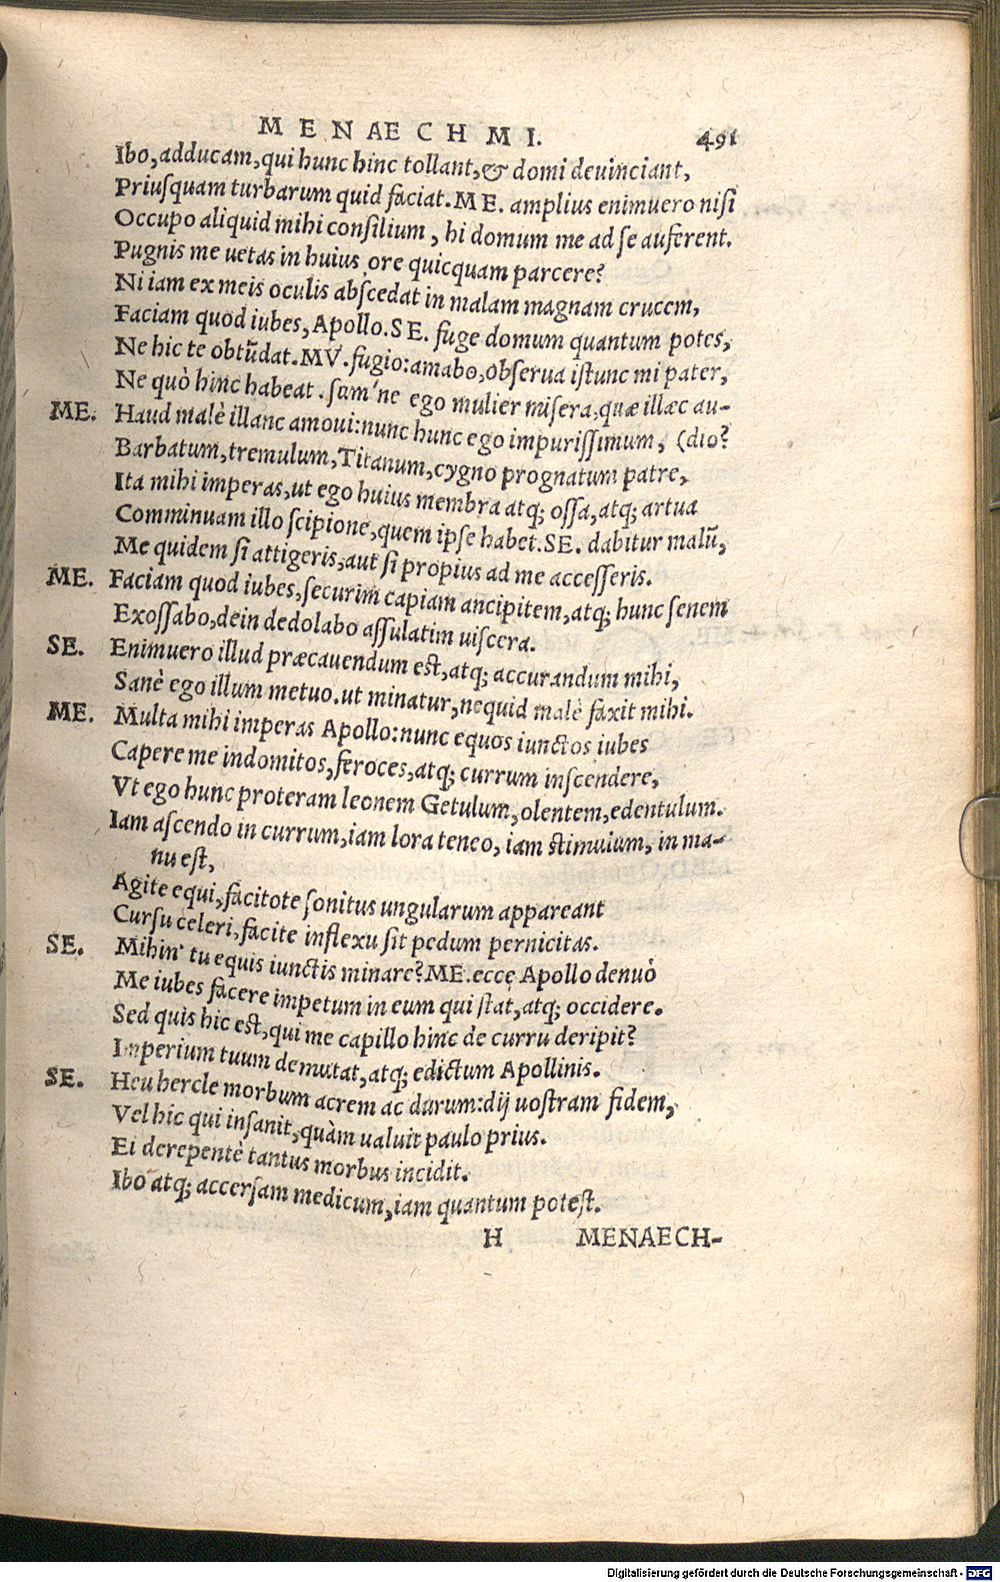 MENAECHMI. 491
Ibo, adducam, qui hunc hinc tollant, & domi deuinciant,
Priuſquam turbarum quid faciat. ME. amplius enimuero niſi
Occupo aliquid mihi conſilium, hi domum me ad ſe auferent.
Pugnis me uetas in huius ore quicquam parcere?
Ni iam ex meis oculis abſcedat in malam magnam crucem,
Faciam quod iubes, Apollo. SE. fuge domum quantum potes,
Ne hic te obtūdat. MV. fugio: amabo, obſerua iſtunc mi pater,
Ne quò hinc habeat. ſum'ne ego mulier miſera, quæ illæc au-
ME. Haud malè illanc amoui: nunc hunc ego impuriſſimum, (dio?
Barbatum, tremulum, Titanum, cygno prognatum patre,
Ita mihi imperas, ut ego huius membra atq; oſſa, atq; artua
Comminuam illo ſcipione, quem ipſe habet. SE. dabitur malū,
Me quidem ſi attigeris, aut ſi propius ad me acceſſeris.
ME. Faciam quod iubes, ſecurim capiam ancipitem, atq; hunc ſenem
Exoſſabo, dein dedolabo aſſulatim uiſcera.
SE. Enimuero illud præcauendum eſt, atq; accurandum mihi,
Sanè ego illum metuo. ut minatur, nequid malè faxit mihi.
ME. Multa mihi imperas Apollo: nunc equos iunctos iubes
Capere me indomitos, feroces, atq; currum inſcendere,
Vt ego hunc proteram leonem Getulum, olentem, edentulum.
Iam aſcendo in currum, iam lora teneo, iam ſtimulum, in ma-
nu eſt,
Agite equi, facitote ſonitus ungularum appareant
Curſu celeri, facite inflexu ſit pedum pernicitas.
SE. Mihin' tu equis iunctis minare? ME. ecce Apollo denuò
Me iubes facere impetum in eum qui ſtat, atq; occidere.
Sed quis hic eſt, qui me capillo hinc de curru deripit?
Imperium tuum demutat, atq; edictum Apollinis.
SE. Heu hercle morbum acrem ac durum: dij uoſtram fidem,
Vel hic qui inſanit, quàm ualuit paulo prius.
Ei derepentè tantus morbus incidit.
Ibo atq; accerſam medicum, iam quantum poteſt.
H MENAECH-
Digitalisierung gefördert durch die Deutsche Forschungsgemeinschaft - DFG